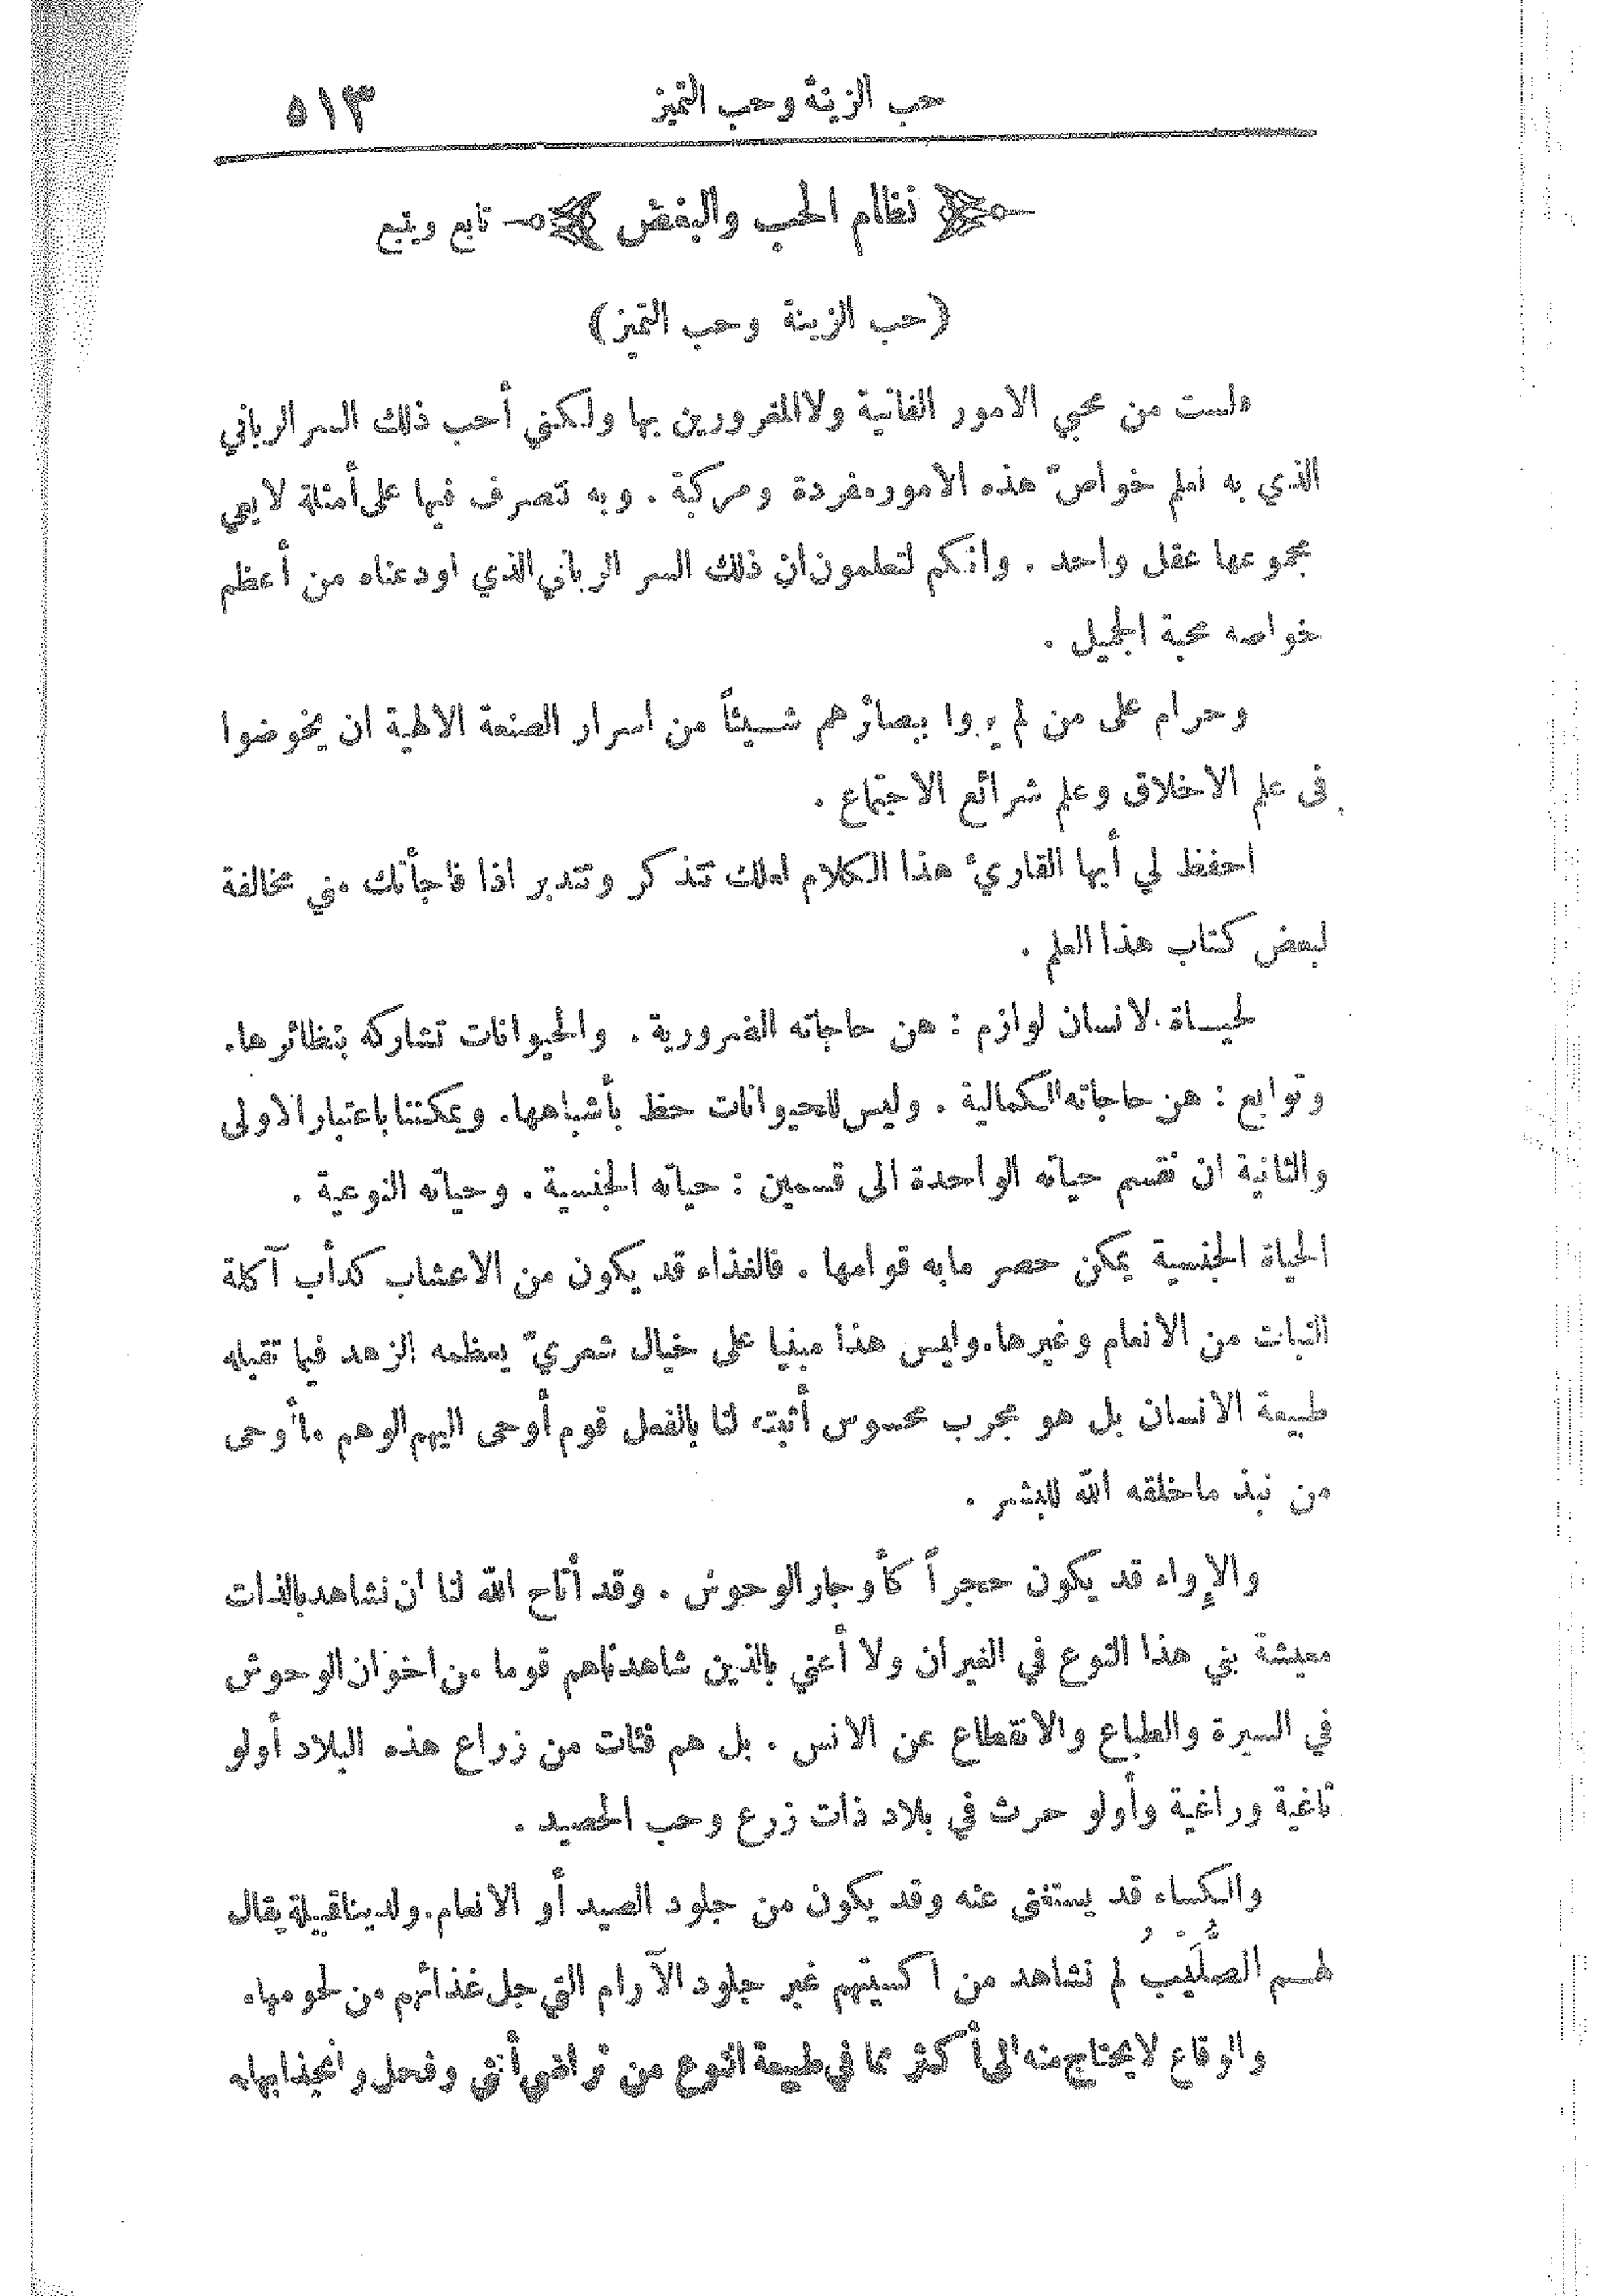 حب الزينة وحب التميز ٥١٣
نظام الحب والبغض تابع ويتبع
(حب الزينة وحب التميز)
«لست من محبي الامور الفانية ولا المغرورين بها ولكني أحب ذلك السر الرباني
الذي به نعلم خواصّ هذه الامور مفردة ومركبة . وبه نتصرف فيها على أمثلة لا يعي
مجموعها عقل واحد . وانكم لتعلمون ان ذلك السر الرباني الذي اودعناه من أعظم
خواصه محبة الجميل .
وحرام على من لم يروا ببصائرهم شيئاً من اسرار الصنعة الالهية ان يخوضوا
في علم الاخلاق وعلم شرائع الاجتماع .
احفظ لي أيها القارئ هذا الكلام لعلك تتذكر وتتدبر اذا فاجأتك مني مخالفة
لبعض كتاب هذا العلم .
لحياة الانسان لوازم : هن حاجاته الضرورية . والحيوانات تشاركه بنظائرها.
وتوابع : هن حاجاته الكمالية . وليس للحيوانات حظ بأشباهها. ويمكننا باعتبار الاولى
والثانية ان نقسم حياته الواحدة الى قسمين : حياته الجنسية . وحياته النوعية .
الحياة الجنسية يمكن حصر مابه قوامها . فالغذاء قد يكون من الاعشاب كدأب آكلة
النبات من الانعام وغيرها. وليس هذا مبنيا على خيال شعريّ يعظمه الزهد فيما تقبله
طبيعة الانسان بل هو مجرب محسوس أثبته لنا بالفعل قوم أوحى اليهم الوهم ما أوحى
من نبذ ماخلقه الله للبشر .
والإواء قد يكون حجراً كأوجار الوحوش . وقد أتاح الله لنا ان نشاهد بالذات
معيشة بني هذا النوع في الغيران ولا أعني بالذين شاهدناهم قوما من اخوان الوحوش
في السيرة والطباع والانقطاع عن الانس . بل هم فئات من زراع هذه البلاد أولو
ثاغية وراغية وأولو حرث في بلاد ذات زرع وحب الحصيد .
والكساء قد يستغنى عنه وقد يكون من جلود الصيد أو الانعام. ولدينا قبيلة يقال
لهم الصُّلَيْبُ لم نشاهد من أكسيتهم غير جلود الآرام التي جل غذائهم من لحومها.
والوقاع لا يحتاج منه الى أكثر مما في طبيعة النوع من تراضي أنثى وفحل وانجذابهما.